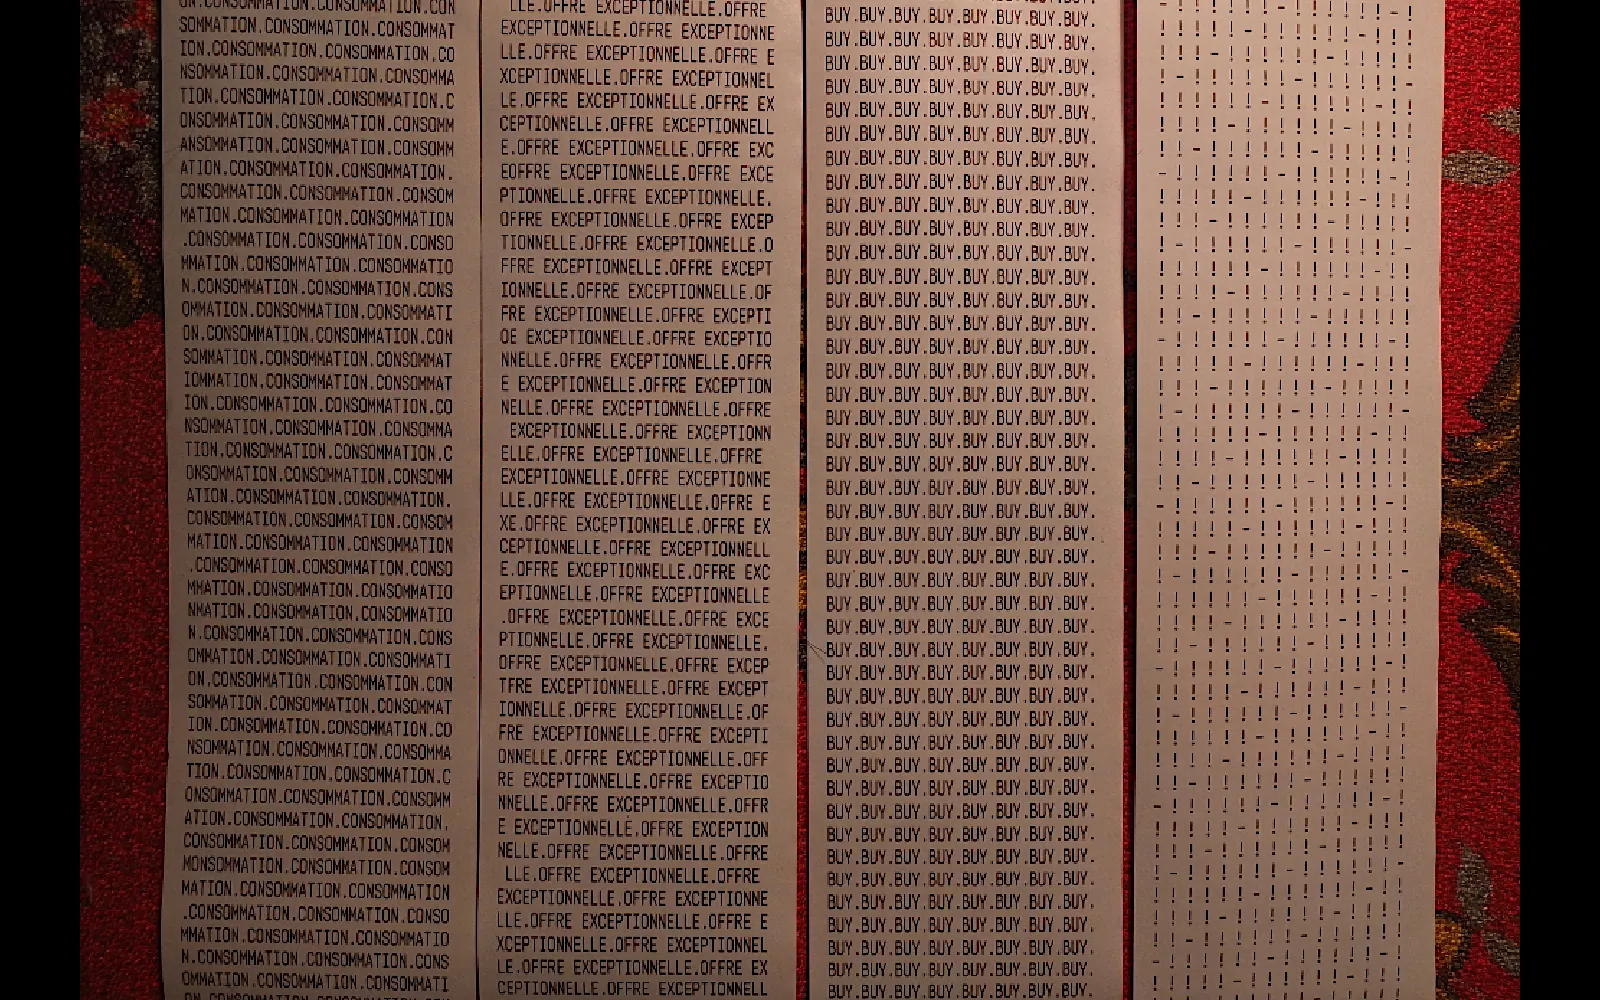 ON.CONSOMMATION.CONSOMMATION.CON
SOMMATION.CONSOMMATION.CONSOMMAT
ION.CONSOMMATION.CONSOMMATION.CO
NSOMMATION.CONSOMMATION.CONSOMMA
TION.CONSOMMATION.CONSOMMATION.C
ONSOMMATION.CONSOMMATION.CONSOMM
ANSOMMATION.CONSOMMATION.CONSOMM
ATION.CONSOMMATION.CONSOMMATION.
CONSOMMATION.CONSOMMATION.CONSOM
MATION.CONSOMMATION.CONSOMMATION
.CONSOMMATION.CONSOMMATION.CONSO
MMATION.CONSOMMATION.CONSOMMATIO
N.CONSOMMATION.CONSOMMATION.CONS
OMMATION.CONSOMMATION.CONSOMMATI
ON.CONSOMMATION.CONSOMMATION.CON
SOMMATION.CONSOMMATION.CONSOMMAT
IOMMATION.CONSOMMATION.CONSOMMAT
ION.CONSOMMATION.CONSOMMATION.CO
NSOMMATION.CONSOMMATION.CONSOMMA
TION.CONSOMMATION.CONSOMMATION.C
ONSOMMATION.CONSOMMATION.CONSOMM
ATION.CONSOMMATION.CONSOMMATION.
CONSOMMATION.CONSOMMATION.CONSOM
MATION.CONSOMMATION.CONSOMMATION
.CONSOMMATION.CONSOMMATION.CONSO
MMATION.CONSOMMATION.CONSOMMATIO
NMATION.CONSOMMATION.CONSOMMATIO
N.CONSOMMATION.CONSOMMATION.CONS
OMMATION.CONSOMMATION.CONSOMMATI
ON.CONSOMMATION.CONSOMMATION.CON
SOMMATION.CONSOMMATION.CONSOMMAT
ION.CONSOMMATION.CONSOMMATION.CO
NSOMMATION.CONSOMMATION.CONSOMMA
TION.CONSOMMATION.CONSOMMATION.C
ONSOMMATION.CONSOMMATION.CONSOMM
ATION.CONSOMMATION.CONSOMMATION.
CONSOMMATION.CONSOMMATION.CONSOM
MONSOMMATION.CONSOMMATION.CONSOM
MATION.CONSOMMATION.CONSOMMATION
.CONSOMMATION.CONSOMMATION.CONSO
MMATION.CONSOMMATION.CONSOMMATIO
N.CONSOMMATION.CONSOMMATION.CONS
OMMATION.CONSOMMATION.CONSOMMATI
ON.CONSOMMATION.CONSOMMATION.CON
LLE.OFFRE EXCEPTIONNELLE.OFFRE
EXCEPTIONNELLE.OFFRE EXCEPTIONNE
LLE.OFFRE EXCEPTIONNELLE.OFFRE E
XCEPTIONNELLE.OFFRE EXCEPTIONNEL
LE.OFFRE EXCEPTIONNELLE.OFFRE EX
CEPTIONNELLE.OFFRE EXCEPTIONNELL
E.OFFRE EXCEPTIONNELLE.OFFRE EXC
EOFFRE EXCEPTIONNELLE.OFFRE EXCE
PTIONNELLE.OFFRE EXCEPTIONNELLE.
OFFRE EXCEPTIONNELLE.OFFRE EXCEP
TIONNELLE.OFFRE EXCEPTIONNELLE.O
FFRE EXCEPTIONNELLE.OFFRE EXCEPT
IONNELLE.OFFRE EXCEPTIONNELLE.OF
FRE EXCEPTIONNELLE.OFFRE EXCEPTI
OE EXCEPTIONNELLE.OFFRE EXCEPTIO
NNELLE.OFFRE EXCEPTIONNELLE.OFFR
E EXCEPTIONNELLE.OFFRE EXCEPTION
NELLE.OFFRE EXCEPTIONNELLE.OFFRE
EXCEPTIONNELLE.OFFRE EXCEPTIONN
ELLE.OFFRE EXCEPTIONNELLE.OFFRE
EXCEPTIONNELLE.OFFRE EXCEPTIONNE
LLE.OFFRE EXCEPTIONNELLE.OFFRE E
XE.OFFRE EXCEPTIONNELLE.OFFRE EX
CEPTIONNELLE.OFFRE EXCEPTIONNELL
E.OFFRE EXCEPTIONNELLE.OFFRE EXC
EPTIONNELLE.OFFRE EXCEPTIONNELLE
.OFFRE EXCEPTIONNELLE.OFFRE EXCE
PTIONNELLE.OFFRE EXCEPTIONNELLE.
OFFRE EXCEPTIONNELLE.OFFRE EXCEP
TFRE EXCEPTIONNELLE.OFFRE EXCEPT
IONNELLE.OFFRE EXCEPTIONNELLE.OF
FRE EXCEPTIONNELLE.OFFRE EXCEPTI
ONNELLE.OFFRE EXCEPTIONNELLE.OFF
RE EXCEPTIONNELLE.OFFRE EXCEPTIO
NNELLE.OFFRE EXCEPTIONNELLE.OFFR
E EXCEPTIONNELLE.OFFRE EXCEPTION
NELLE.OFFRE EXCEPTIONNELLE.OFFRE
LLE.OFFRE EXCEPTIONNELLE.OFFRE
EXCEPTIONNELLE.OFFRE EXCEPTIONNE
LLE.OFFRE EXCEPTIONNELLE.OFFRE E
XCEPTIONNELLE.OFFRE EXCEPTIONNEL
LE.OFFRE EXCEPTIONNELLE.OFFRE EX
CEPTIONNELLE.OFFRE EXCEPTIONNELL
BUY.BUY.BUY.BUY.BUY.BUY.BUY.BUY.
BUY.BUY.BUY.BUY.BUY.BUY.BUY.BUY.
BUY.BUY.BUY.BUY.BUY.BUY.BUY.BUY.
BUY.BUY.BUY.BUY.BUY.BUY.BUY.BUY.
BUY.BUY.BUY.BUY.BUY.BUY.BUY.BUY.
BUY.BUY.BUY.BUY.BUY.BUY.BUY.BUY.
BUY.BUY.BUY.BUY.BUY.BUY.BUY.BUY.
BUY.BUY.BUY.BUY.BUY.BUY.BUY.BUY.
BUY.BUY.BUY.BUY.BUY.BUY.BUY.BUY.
BUY.BUY.BUY.BUY.BUY.BUY.BUY.BUY.
BUY.BUY.BUY.BUY.BUY.BUY.BUY.BUY.
BUY.BUY.BUY.BUY.BUY.BUY.BUY.BUY.
BUY.BUY.BUY.BUY.BUY.BUY.BUY.BUY.
BUY.BUY.BUY.BUY.BUY.BUY.BUY.BUY.
BUY.BUY.BUY.BUY.BUY.BUY.BUY.BUY.
BUY.BUY.BUY.BUY.BUY.BUY.BUY.BUY.
BUY.BUY.BUY.BUY.BUY.BUY.BUY.BUY.
BUY.BUY.BUY.BUY.BUY.BUY.BUY.BUY.
BUY.BUY.BUY.BUY.BUY.BUY.BUY.BUY.
BUY.BUY.BUY.BUY.BUY.BUY.BUY.BUY.
BUY.BUY.BUY.BUY.BUY.BUY.BUY.BUY.
BUY.BUY.BUY.BUY.BUY.BUY.BUY.BUY.
BUY.BUY.BUY.BUY.BUY.BUY.BUY.BUY.
BUY.BUY.BUY.BUY.BUY.BUY.BUY.BUY.
BUY.BUY.BUY.BUY.BUY.BUY.BUY.BUY.
BUY.BUY.BUY.BUY.BUY.BUY.BUY.BUY.
BUY.BUY.BUY.BUY.BUY.BUY.BUY.BUY.
BUY.BUY.BUY.BUY.BUY.BUY.BUY.BUY.
BUY.BUY.BUY.BUY.BUY.BUY.BUY.BUY.
BUY.BUY.BUY.BUY.BUY.BUY.BUY.BUY.
BUY.BUY.BUY.BUY.BUY.BUY.BUY.BUY.
BUY.BUY.BUY.BUY.BUY.BUY.BUY.BUY.
BUY.BUY.BUY.BUY.BUY.BUY.BUY.BUY.
BUY.BUY.BUY.BUY.BUY.BUY.BUY.BUY.
BUY.BUY.BUY.BUY.BUY.BUY.BUY.BUY.
BUY.BUY.BUY.BUY.BUY.BUY.BUY.BUY.
BUY.BUY.BUY.BUY.BUY.BUY.BUY.BUY.
BUY.BUY.BUY.BUY.BUY.BUY.BUY.BUY.
BUY.BUY.BUY.BUY.BUY.BUY.BUY.BUY.
BUY.BUY.BUY.BUY.BUY.BUY.BUY.BUY.
BUY.BUY.BUY.BUY.BUY.BUY.BUY.BUY.
BUY.BUY.BUY.BUY.BUY.BUY.BUY.BUY.
BUY.BUY.BUY.BUY.BUY.BUY.BUY.BUY.